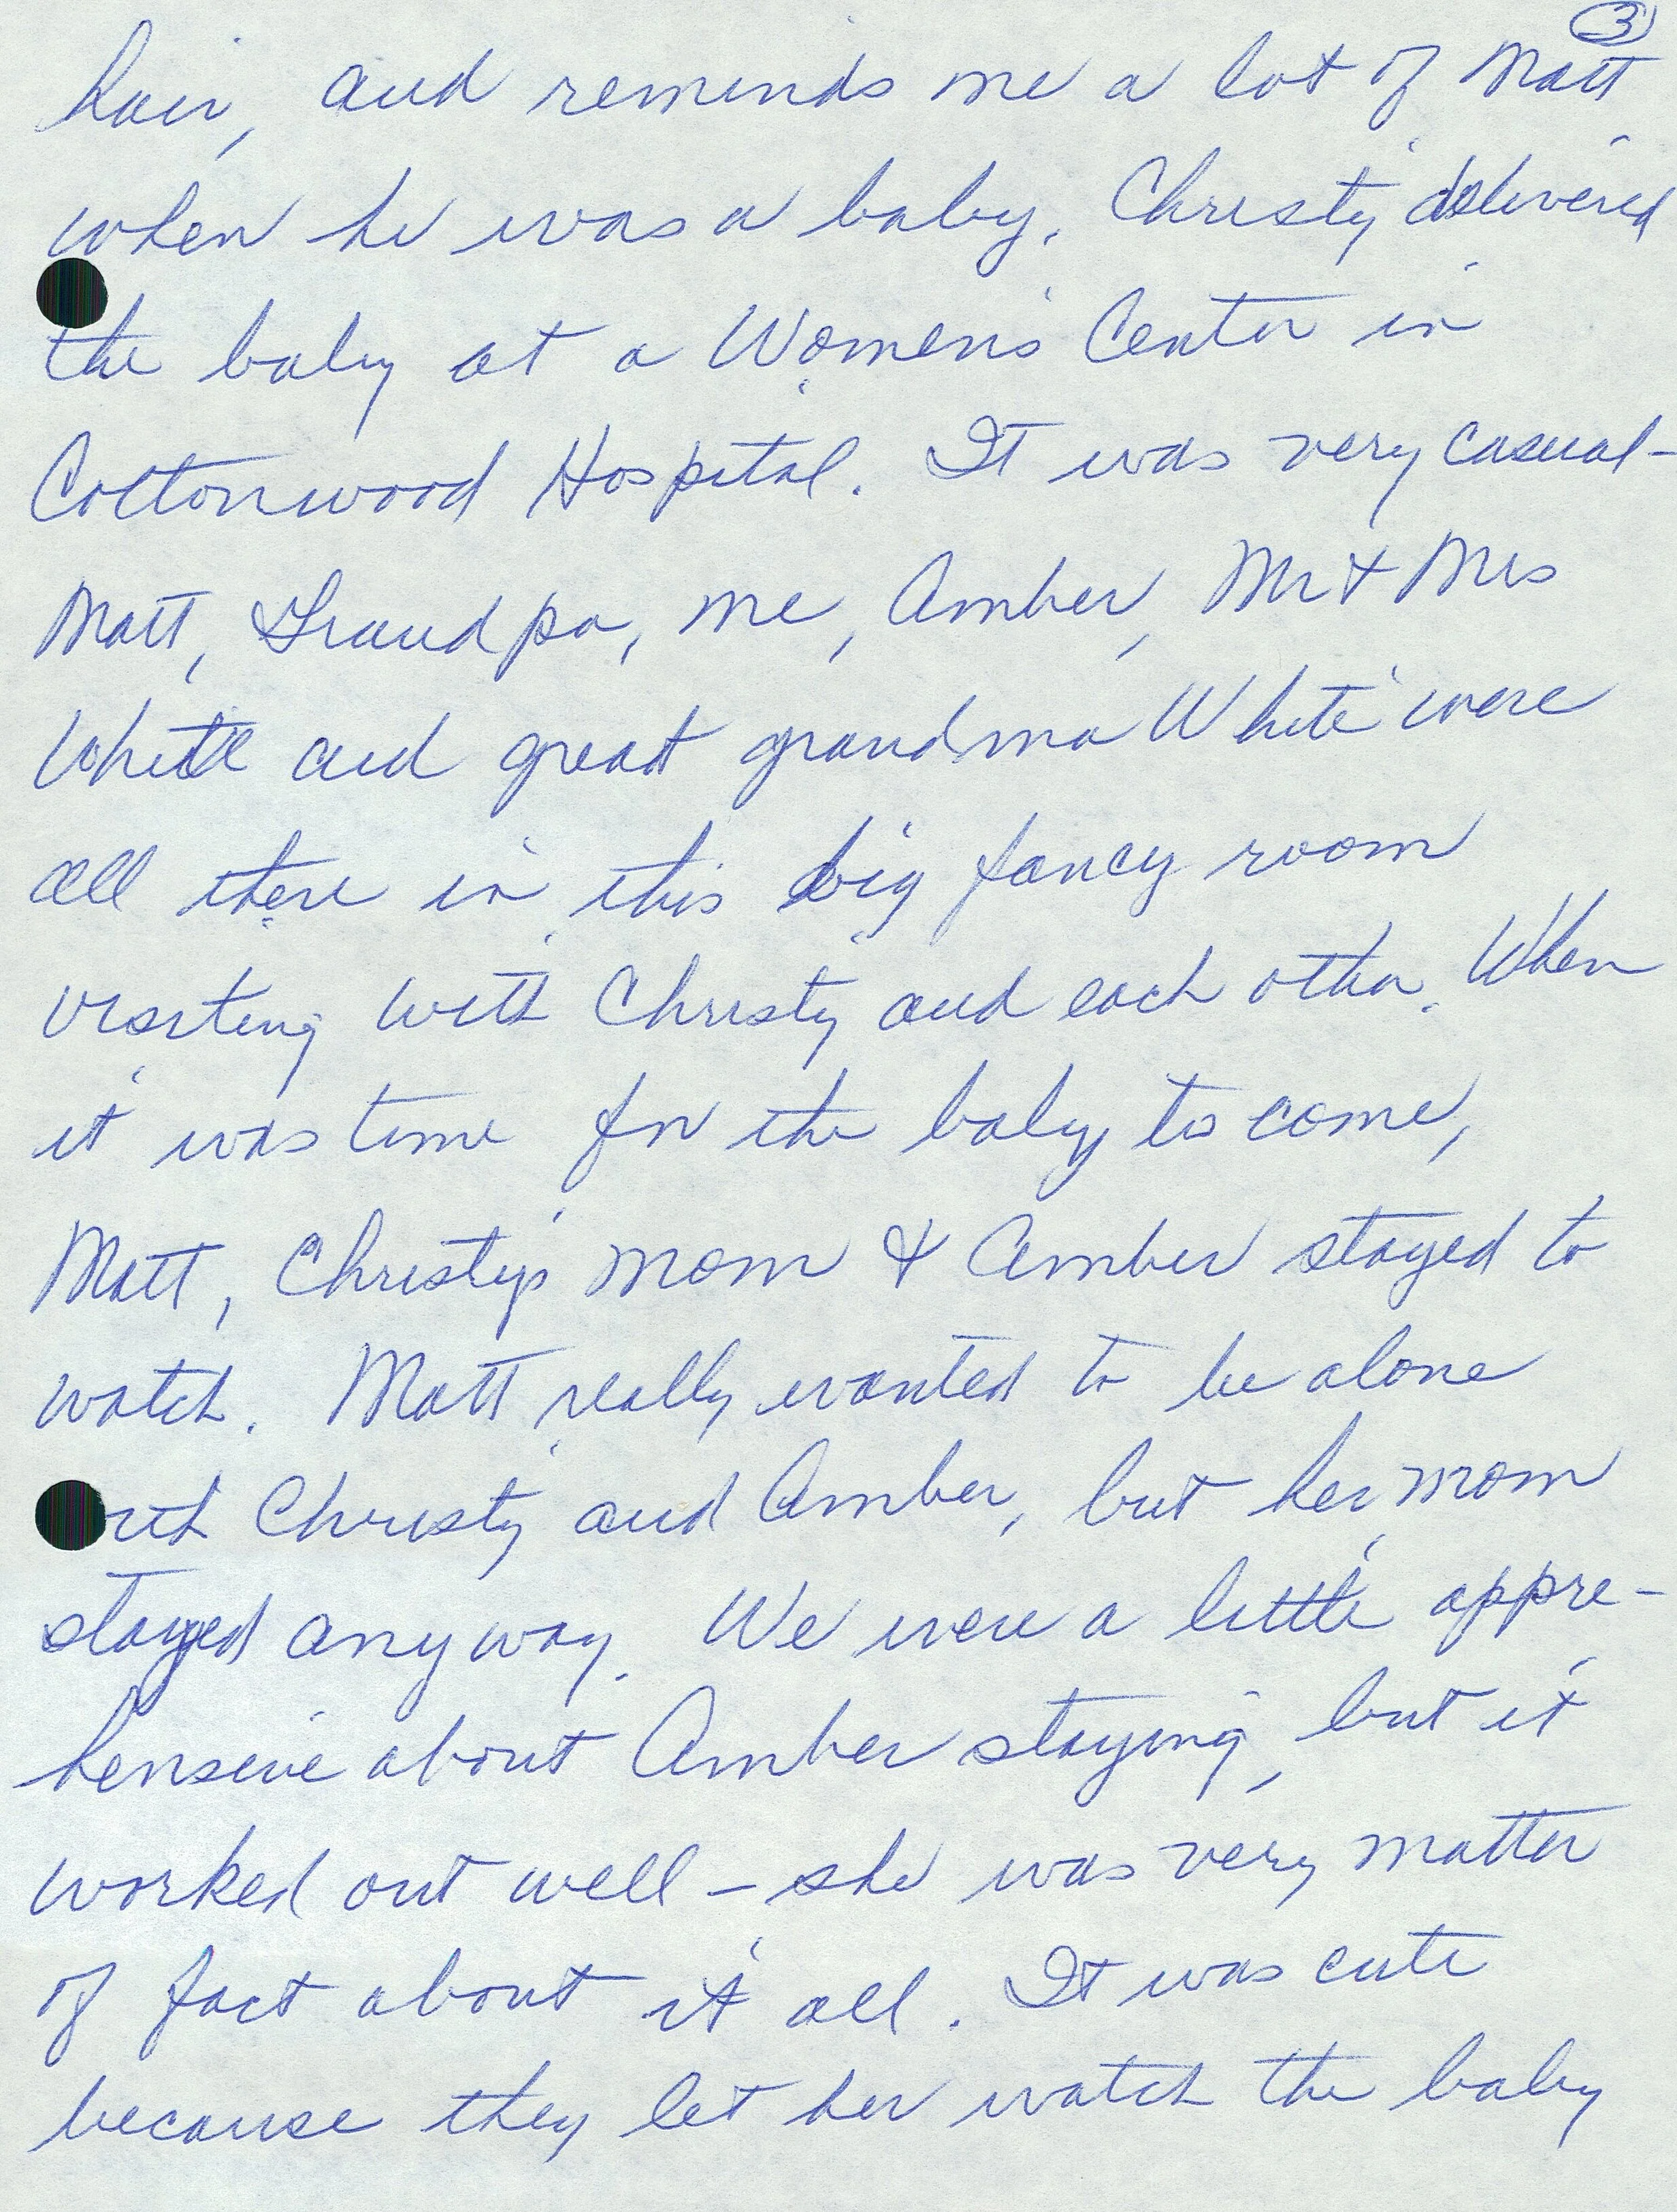 3
hair, and reminds me a lot of Matt
when he was a baby. Christy delivered
the baby at a Women's Center in
Cottonwood Hospital. It was very casual -
Matt, Grandpa, me, Amber, Mr & Mrs
White and great grandma White were
all there in this big fancy room
visiting with Christy and each other. When
it was time for the baby to come,
Matt, Christy's mom & Amber stayed to
watch. Matt really wanted to be alone
with Christy and Amber, but her mom
stayed anyway. We were a little appre-
hensive about Amber staying, but it
worked out well - she was very matter
of fact about it all. It was cute
because they let her watch the baby